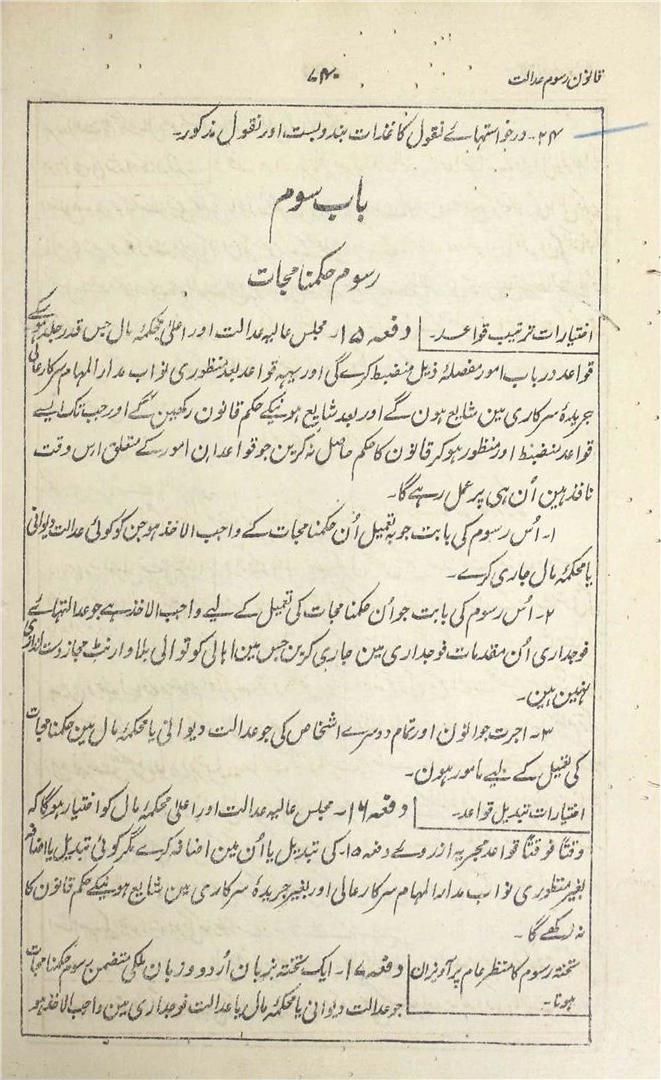 قانون رسوم عدالت
۲۴- درخواستہائے نقول کاغذات بندوبست اور نقول مذکور۔
باب سوم
رسوم حکمنامجات
اختیارات ترتیب قواعد۔ دفعہ ۱۵- مجلس عالیہ عدالت اور اعلیٰ محکمۂ مال جس قدر جلد ہوسکے
قواعد درباب امور مفصلۂ ذیل منضبط کرے گی اور یہہ قواعد بعد منظوری نواب مدار المہام سرکار عالی
جریدۂ سرکاری مین شایع ہون گے اور بعد شایع ہونیکے حکم قانون رکھین گے اور جب تک ایسے
قواعد منضبط اور منظور ہو کر قانون کا حکم حاصل نہ کرین جو قواعد ان امور کے متعلق اس وقت
نافذ ہین اُن ہی پر عمل رہے گا۔
۱- اُس رسوم کی بابت جو بہ تعمیل اُن حکمنامجات کے واجب الاخذ ہو جن کو کوئی عدالت دیوانی
یا محکمۂ مال جاری کرے۔
۲- اُس رسوم کی بابت جو اُن حکمنامجات کی تعمیل کے لیے واجب الاخذ ہے جو عدالتہائے
فوجداری اُن مقدمات فوجداری مین جاری کرین جس مین اہالی کوتوالی بلا وارنٹ مجاز دست اندازی
نہین ہین۔
۳- اجرت جوانون اور تمام دوسرے اشخاص کی جو عدالت دیوانی یا محکمۂ مال مین حکمنامجات
کی تعمیل کے لیے مامور ہون۔
اختیارات تبدیل قواعد۔ دفعہ ۱۶- مجلس عالیہ عدالت اور اعلیٰ محکمۂ مال کو اختیار ہوگا کہ
وقتاً فوقتاً قواعد مجریہ ازروے دفعہ ۱۵- کی تبدیل یا اُن مین اضافہ کرے مگر کوئی تبدیل یا اضافہ
بغیر منظوری نواب مدار المہام سرکار عالی اور بغیر جریدۂ سرکاری مین شایع ہونیکے حکم قانون کا
نہ رکھے گا۔
تختہ رسوم کا منظر عام پر آویزان دفعہ ۱۷- ایک تختہ بزبان اُردو و زبان ملکی متضمن رسوم حکمنامجات
ہونا۔ جو عدالت دیوانی یا محکمۂ مال یا عدالت فوجداری مین واجب الاخذ ہو